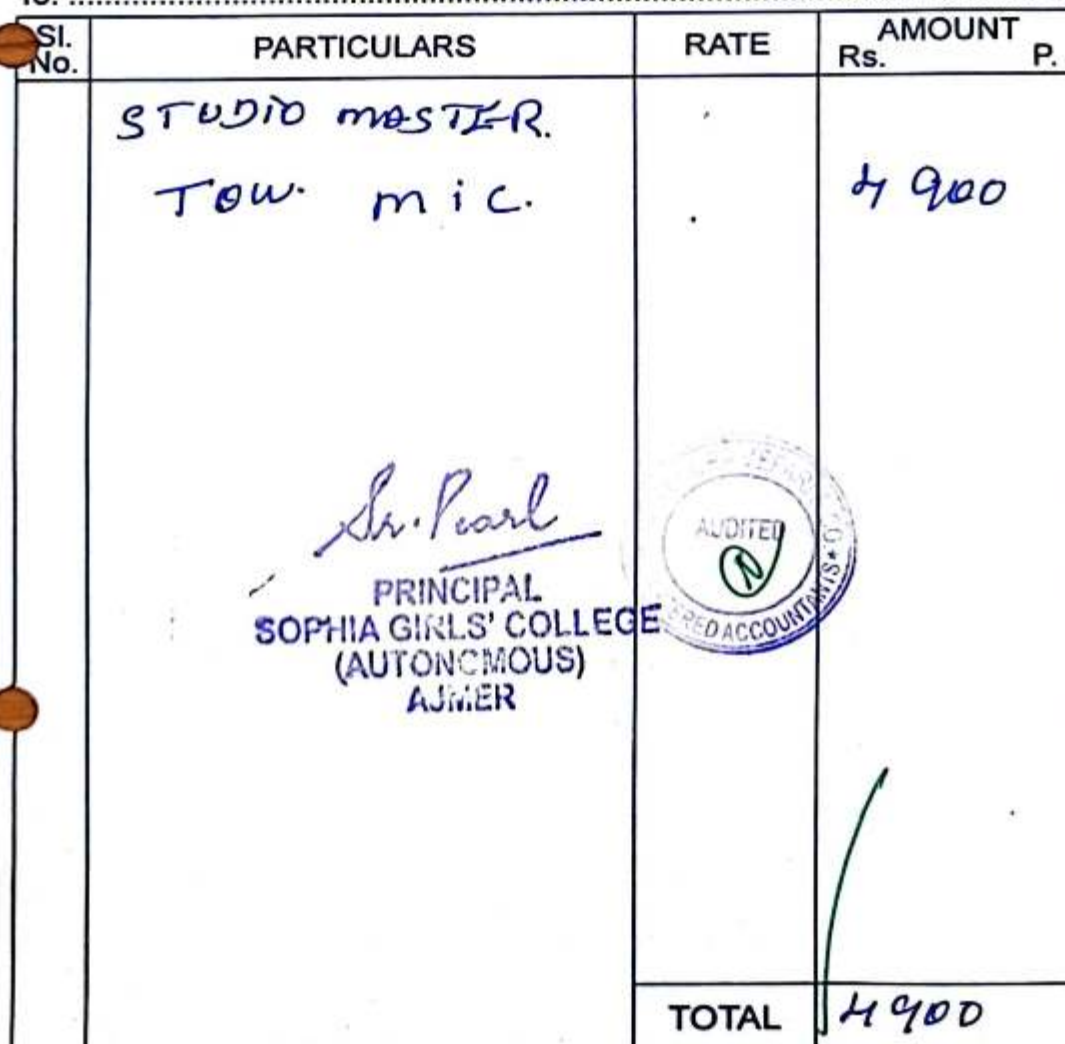 Sl. No.
PARTICULARS
RATE
AMOUNT
Rs. P.
STUDIO MASTER.
TOW. mic.
4900
Sr. Pearl
PRINCIPAL
SOPHIA GIRLS' COLLEGE
(AUTONOMOUS)
AJMER
AUDITED
ACCOUNTANTS
TOTAL
4900